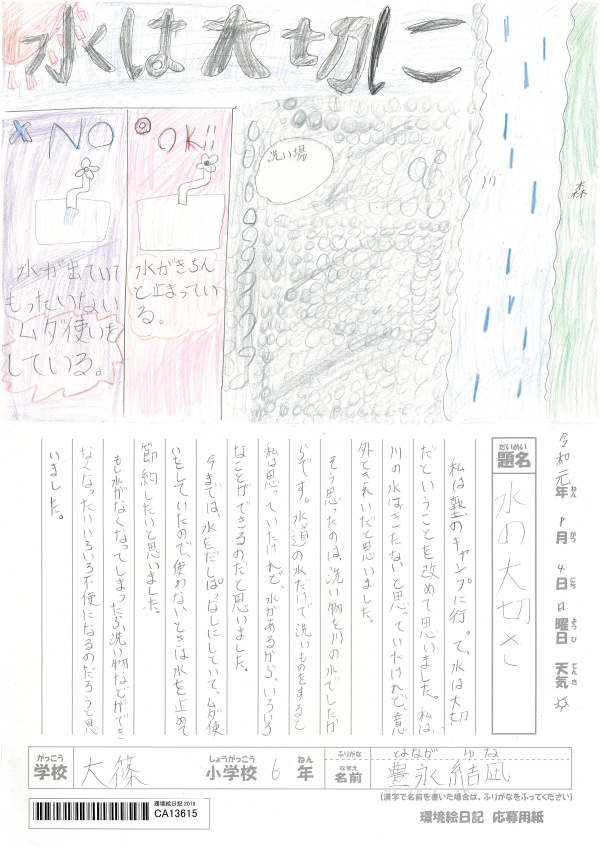 水は大切に
× NO
◎ OK!!
水が出ていて
もったいない
ムダ使いを
している。
水がきちん
と止まってい
る。
洗い場
川
森
令和元年 8月 4日 日曜日 天気
ねん がつ にち ようび てんき
だいめい
題名
水の大切さ
私は塾のキャンプに行って、水は大切
だということを改めて思いました。私は、
川の水はきたないと思っていたけれど、意
外ときれいだと思いました。
そう思ったのは、洗い物を川の水でしたか
らです。水道の水だけで洗いものをすると
私は思っていたけれど、水があるから、いろいろ
なことができるのだと思いました。
今までは、水をだしぱっなしにしていて、ムダ使
いをしていたので、使わないときは水を止めて
節約したいと思いました。
もし水がなくなってしまったら、洗い物などができ
なくなったりいろいろ不便になるのだろうと思
いました。
がっこう しょうがっこう ねん
学校 大篠 小学校 6年
ふりがな とよなが ゆな
なまえ
名前 豊永結凪
(漢字で名前を書いた場合は、ふりがなをふってください)
環境絵日記 2019
CA13615
環境絵日記 応募用紙